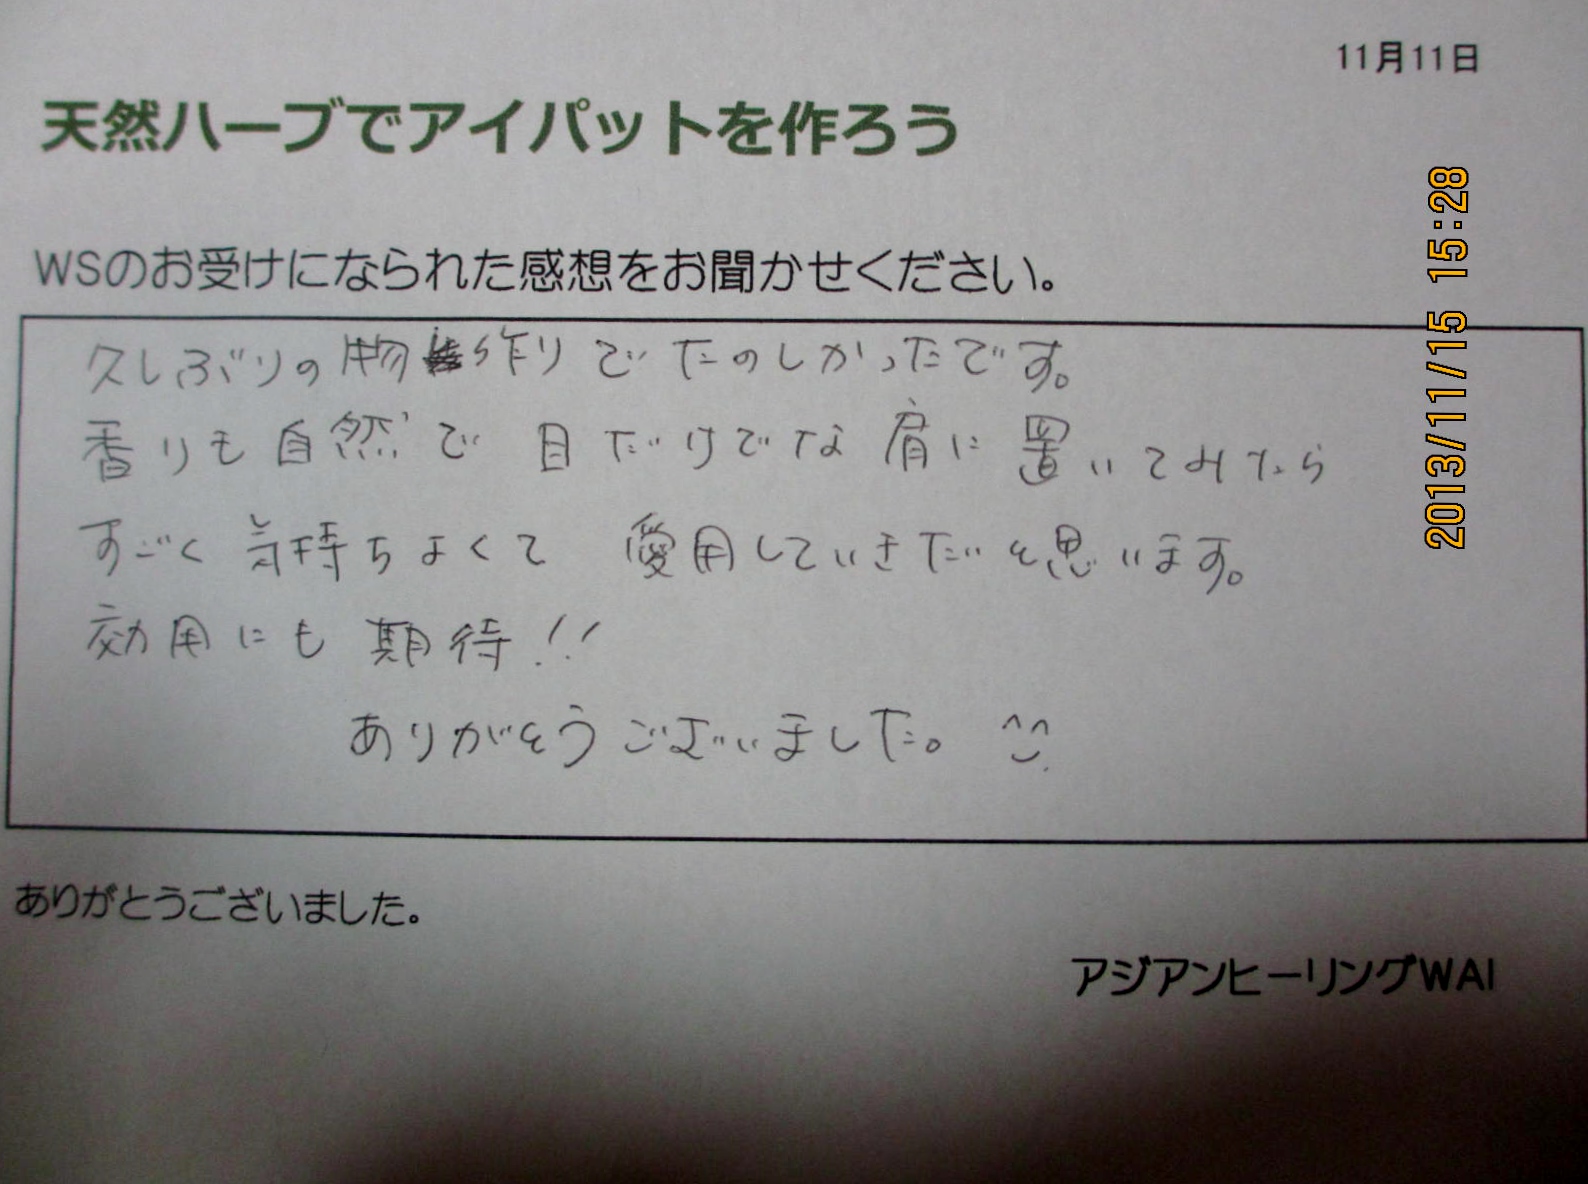 11月11日
天然ハーブでアイパットを作ろう
WSのお受けになられた感想をお聞かせください。
久しぶりの物作りでたのしかったです。
香りも自然で目だけでな肩に置いてみたら
すごく気持ちよくて 愛用していきたいと思います。
効用にも期待!!
ありがとうございました。^^
ありがとうございました。
アジアンヒーリングWAI
2013/11/15 15:28